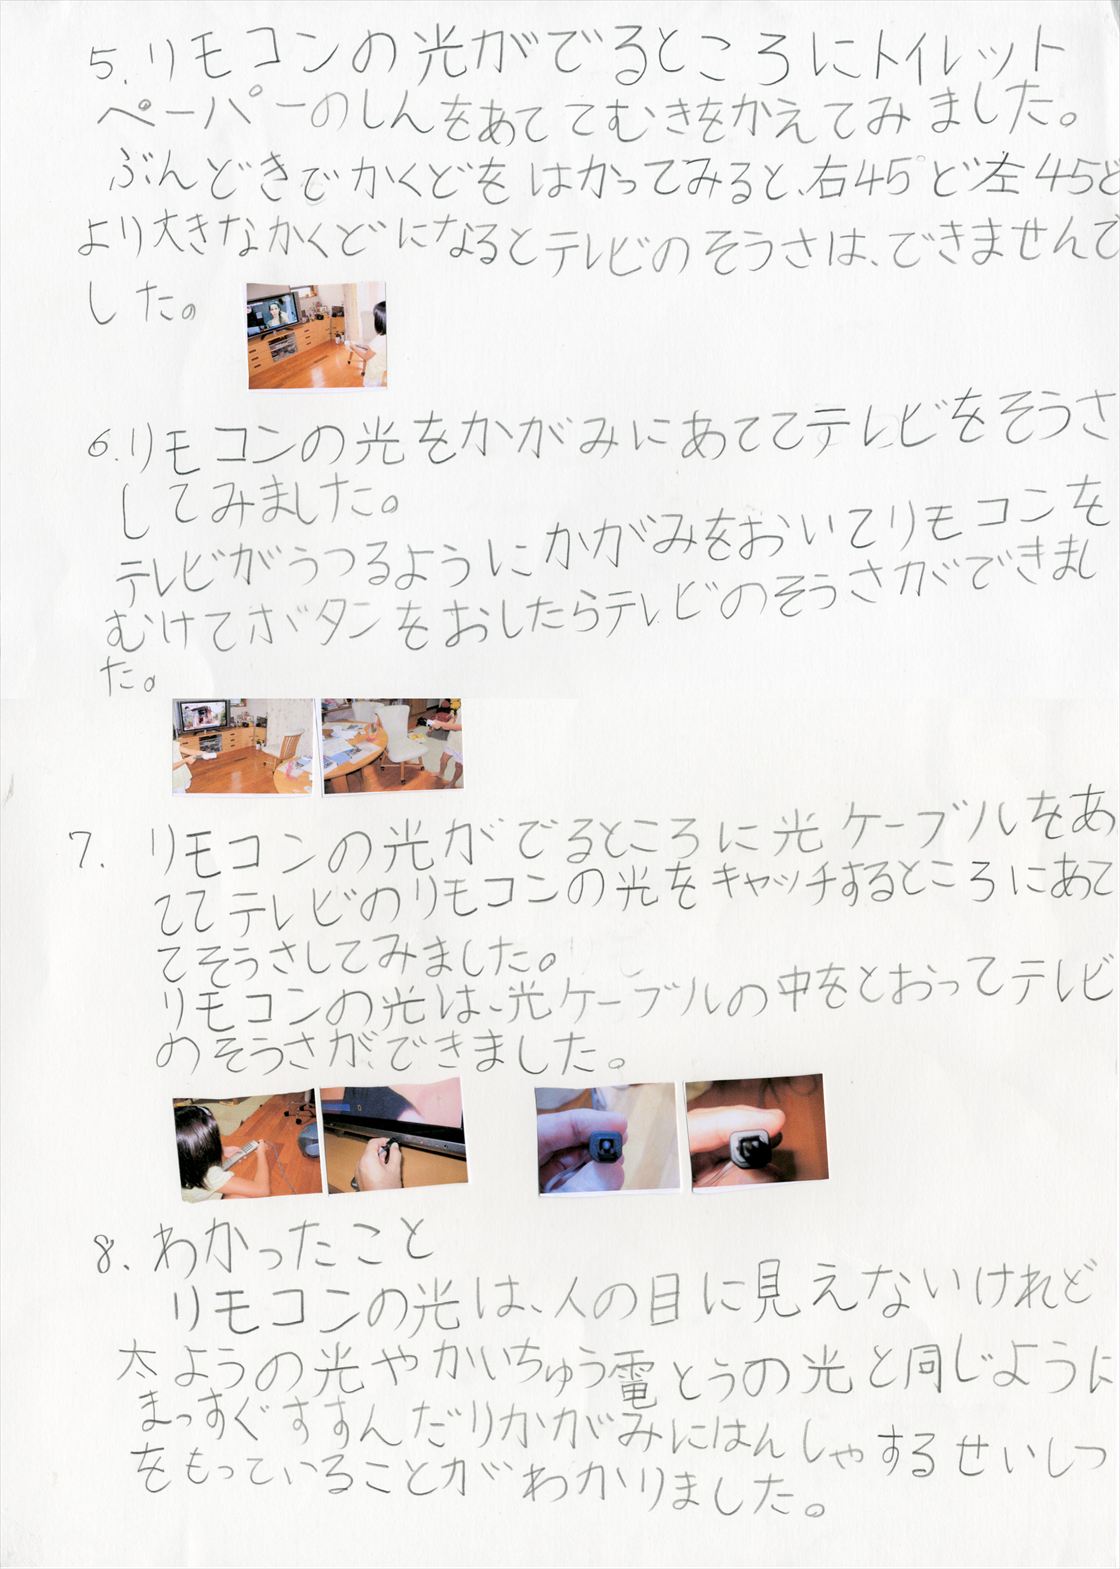 5. リモコンの光がでるところにトイレット
ペーパーのしんをあててむきをかえてみました。
ぶんどきでかくどをはかってみると、右45°ど左45ど
より大きなかくどになるとテレビのそうさは、できませんで
した。
6. リモコンの光をかがみにあててテレビをそうさ
してみました。
テレビがうつるようにかがみをおいてリモコンを
むけてボタンをおしたらテレビのそうさができまし
た。
7. リモコンの光がでるところに光ケーブルをあ
ててテレビのリモコンの光をキャッチするところにあて
てそうさしてみました。
リモコンの光は、光ケーブルの中をとおってテレビ
のそうさが、できました。
8. わかったこと
リモコンの光は、人の目に見えないけれど
太ようの光やかいちゅう電とうの光と同じように
まっすぐすすんだりかがみにはんしゃするせいしつ
をもっていることがわかりました。